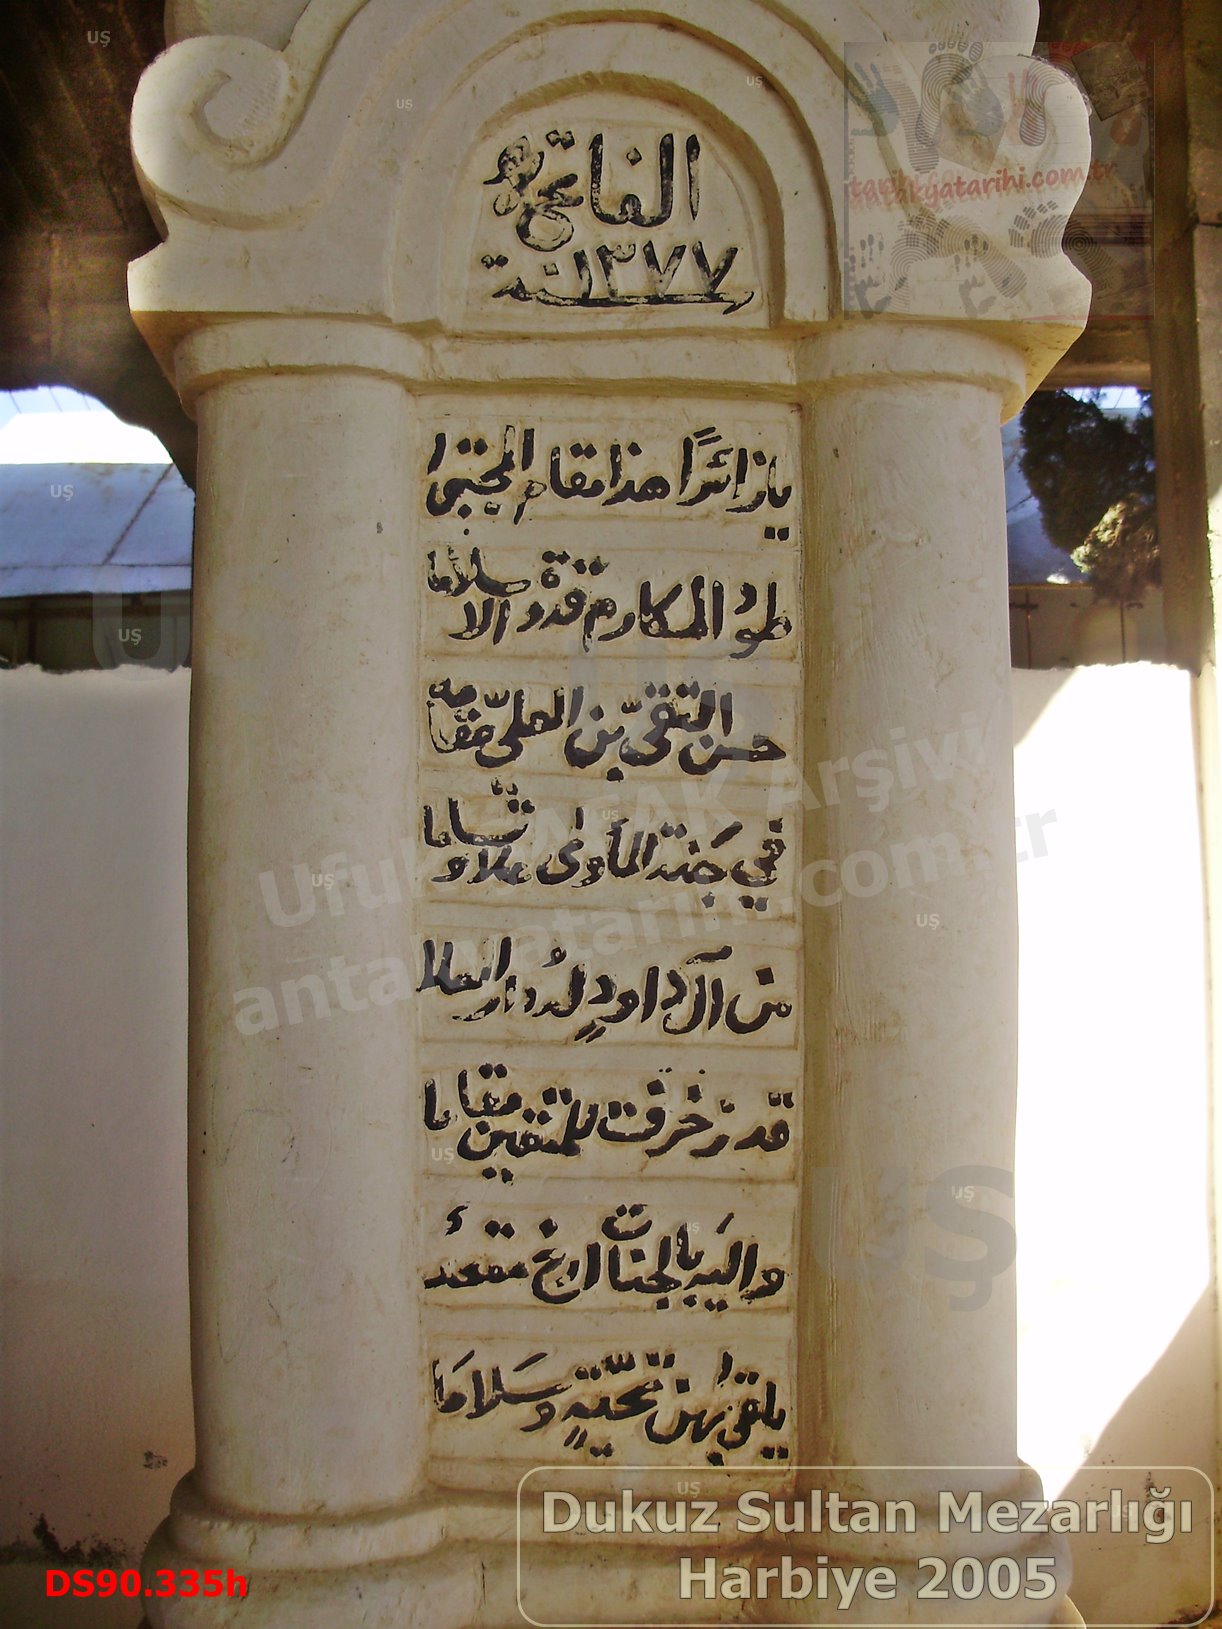 الفاتحة
سنة ١٣٧٧
يا زائرًا هذا مقام المجتبى
طود المكارم قدوة الاسلاما
حسن التقيّ بن العليّ مقامه
في جَنة المأوى علا وتساما
من آل داودٍ لهُ دار العلا
قد زخرفت للمتقين مقاما
واليَه بالجنات ارخ مقعدٌ
يلقى بهن تحيّةٍ وسَلامَا
antakyatarihi.com.tr
Ufuk ŞAFAK Arşivi
antakyatarihi.com.tr
UŞ
Dukuz Sultan Mezarlığı
Harbiye 2005
DS90.335h